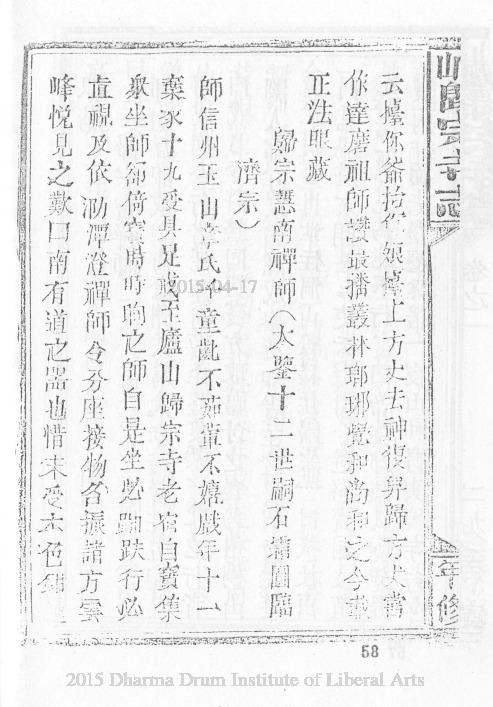 云擡你爺抬你娘擡上方丈去神復昇歸方丈嘗
作達磨祖師讚最播叢林瑯琊覺和尚和之今載
正法眼藏
歸宗慧南禪師（大鑒十二世嗣石霜圓臨
濟宗）
師信州玉山章氏子童齓不茹葷不嬉戲年十一
棄家十九受具足戒至廬山歸宗寺老宿自寶集
眾坐師卻倚寶時時眴之師自是坐必跏趺行必
直視及依泐潭澄禪師令分座接物名振諸方雲
峰悅見之歎曰南有道之器也惜未受本色鉗
年修
58
2015-04-17
2015 Dharma Drum Institute of Liberal Arts